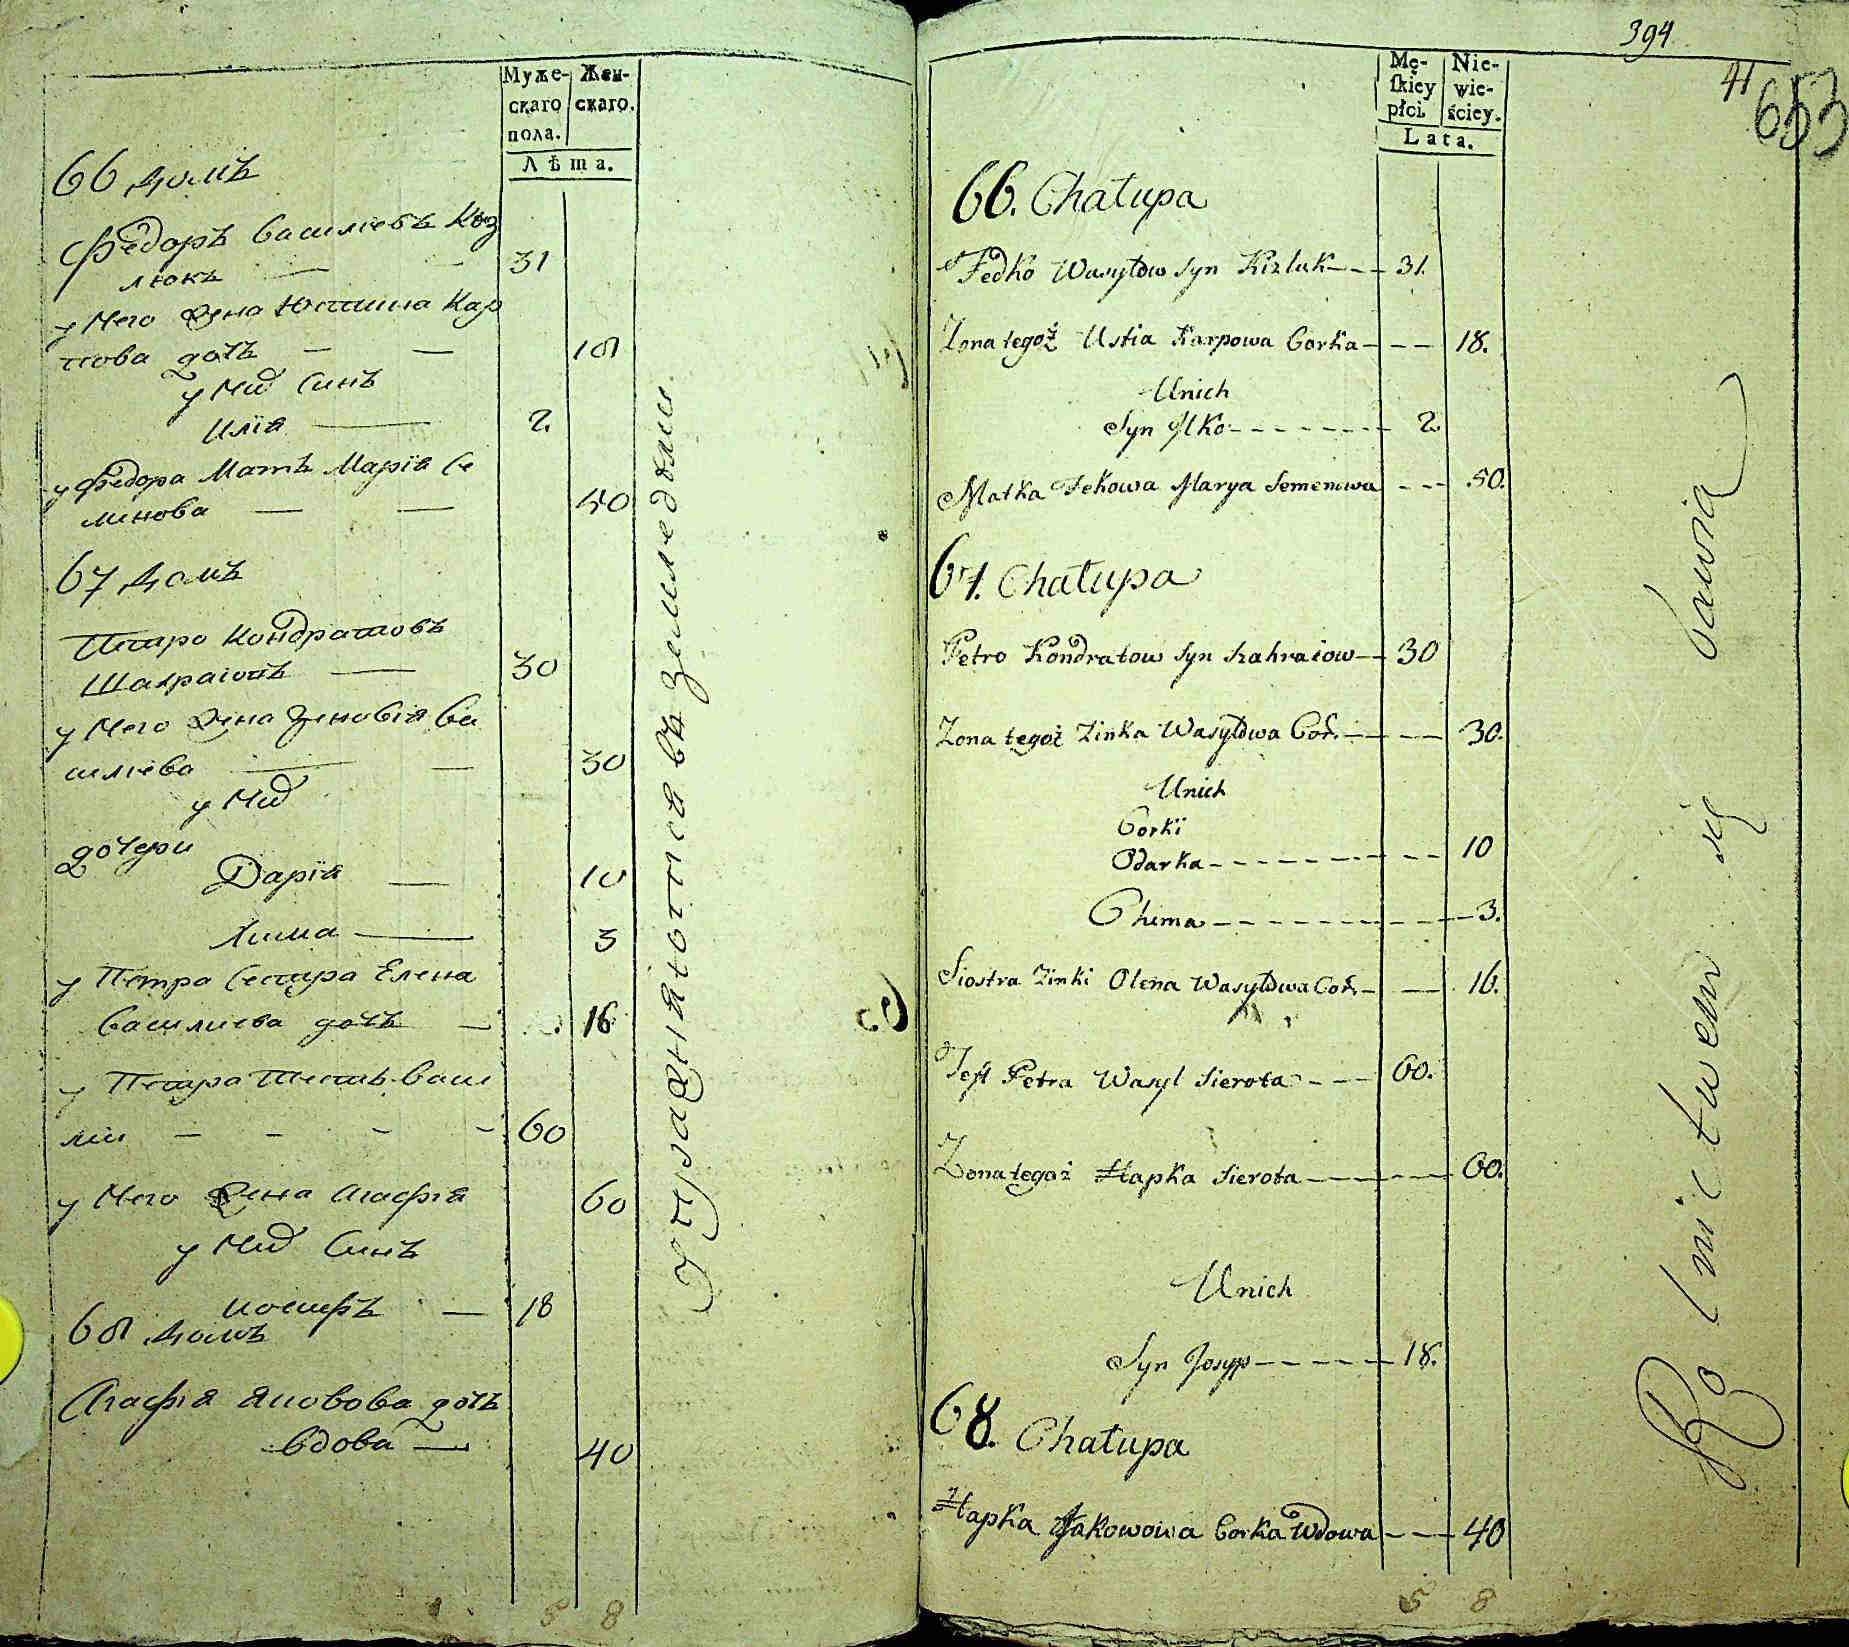 Муже-
скаго
пола.
Жен-
скаго.
Лѣта.
66 домъ
Федоръ Васильевъ Коз
люкъ — — 31
у Него Жена Юстина Кар
пова дочь — — 18
у Них Синъ
Илїя — 2.
у Федора Мать Марїя Се
менова — — 50
67 домъ
Петро Кондратовъ
Шаграювъ — 30
у Него Жена Зеновїя Ва
силиева — — 30
у Них
дочери
Дарїя — 10
Хима — 3
у Петра Сестра Елена
Василиева дочь — 16
у Петра Тесть Васи
лий — — — — 60
у Него Жена Агафїя 60
у Них Синъ
Иосифъ — 18
68 домъ
Агафїя Яковова дочь
вдова — 40
5 8
Упражняются въ земледелии.
394
41
653
Mę-
skiey
płci.
Nie-
wie-
ściey.
Lata.
66. Chałupa
Fedko Wasylow Syn Kizluk - - - 31.
Zona tegoż Ustia Karpowa Corka - - - 18.
Unich
Syn Ilko - - - - - - - 2.
Matka Fekowa Marya Semenowa - - - 50.
67. Chałupa
Petro Kondratow Syn Szahraiow - - 30
Zona tegoż Zinka Wasylowa Cor. - - - 30.
Unich
Corki
Odarka - - - - - - - - 10
Chima - - - - - - - - 3.
Siostra Zinki Olena Wasylowa Cor. - - 16.
Teśt Petra Wasyl Sierota - - - 60.
Zona tegoż Hapka Sierota - - - - 60.
Unich
Syn Josyp - - - - - 18.
68. Chałupa
Hapka Jakowowa Corka Wdowa - - - 40
5 8
Rolnictwem się bawią